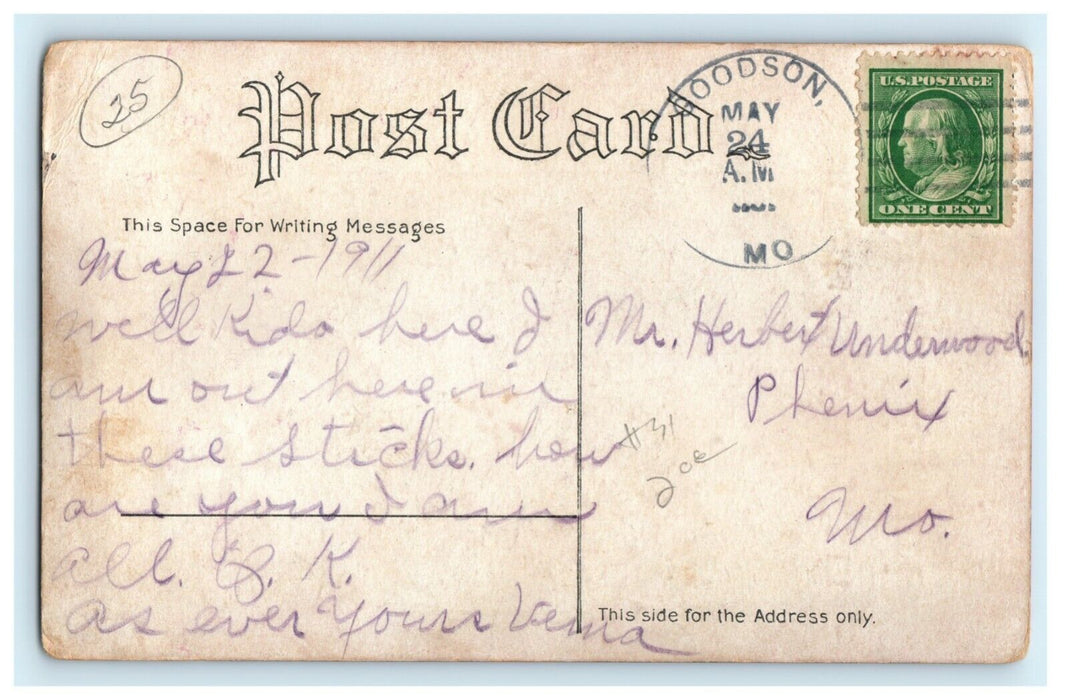 25
Post Card
WOODSON,
MAY
24
A.M
MO
U.S. POSTAGE
ONE CENT
This Space For Writing Messages
May 22-1911
well kido here I
am out here in
these sticks. how
are you I am
all. O. K.
as ever yours
Mr. Herbert Underwood.
Phenix
Mo.
#31
20¢
This side for the Address only.